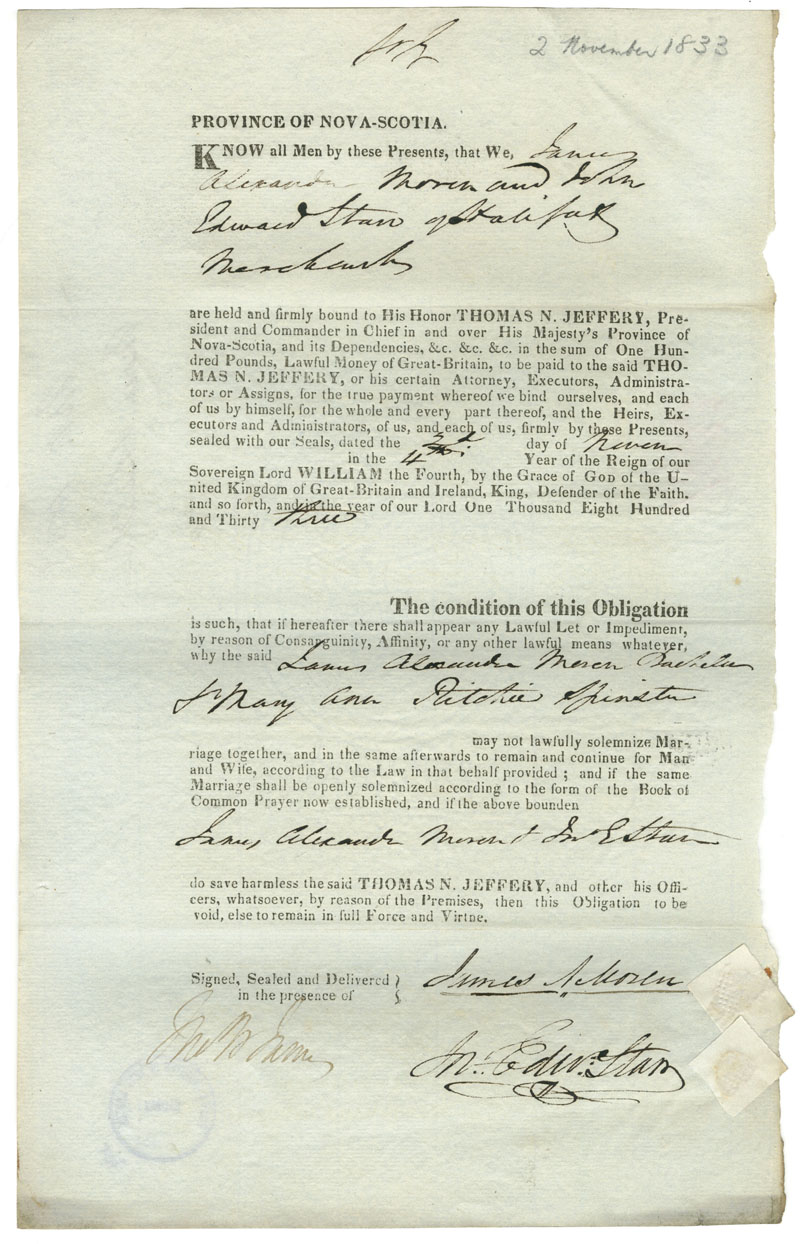 2 November 1833
PROVINCE OF NOVA-SCOTIA.
KNOW all Men by these Presents, that We, James
Alexander Moren and John
Edward Starr of Halifax
Merchants
are held and firmly bound to His Honor THOMAS N. JEFFERY, Pre-
sident and Commander in Chief in and over His Majesty's Province of
Nova-Scotia, and its Dependencies, &c. &c. &c. in the sum of One Hun-
dred Pounds, Lawful Money of Great-Britain, to be paid to the said THO-
MAS N. JEFFERY, or his certain Attorney, Executors, Administra-
tors or Assigns, for the true payment whereof we bind ourselves, and each
of us by himself, for the whole and every part thereof, and the Heirs, Ex-
ecutors and Administrators, of us, and each of us, firmly by these Presents,
sealed with our Seals, dated the 2d day of Novem
in the 4th Year of the Reign of our
Sovereign Lord WILLIAM the Fourth, by the Grace of GOD of the U-
nited Kingdom of Great-Britain and Ireland, King, Defender of the Faith.
and so forth, and in the year of our Lord One Thousand Eight Hundred
and Thirty three
The condition of this Obligation
is such, that if hereafter there shall appear any Lawful Let or Impediment,
by reason of Consanguinity, Affinity, or any other lawful means whatever,
why the said James Alexander Moren Bachelor
& Mary Ann Ritchie Spinster
may not lawfully solemnize Mar-
riage together, and in the same afterwards to remain and continue for Man
and Wife, according to the Law in that behalf provided; and if the same
Marriage shall be openly solemnized according to the form of the Book of
Common Prayer now established, and if the above bounden
James Alexander Moren & Jno E Starr
do save harmless the said THOMAS N. JEFFERY, and other his Offi-
cers, whatsoever, by reason of the Premises, then this Obligation to be
void, else to remain in full Force and Virtne.
Signed, Sealed and Delivered
in the presence of
James A Moren
Jno. Edwd. Starr